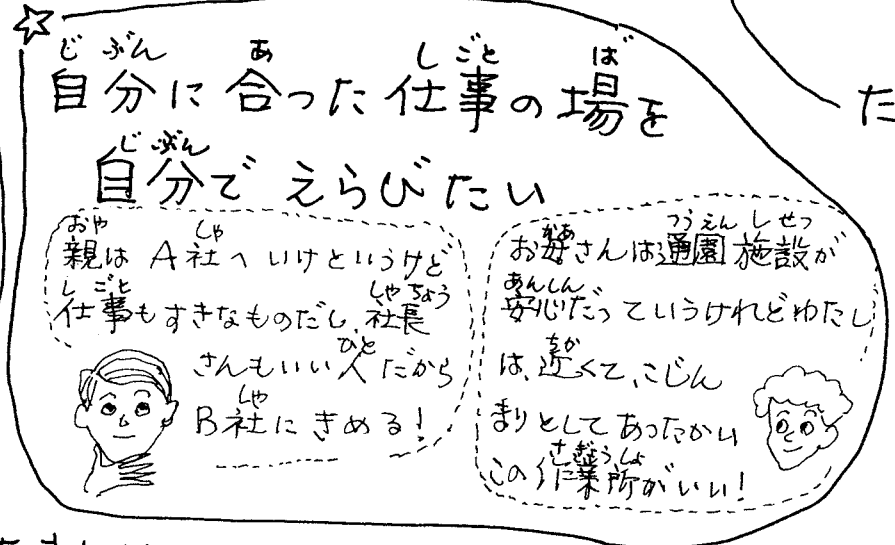 ☆
自分に合った仕事の場を
自分でえらびたい
親は A社へ いけというけど
仕事もすきなものだし、社長
さんもいい人だから
B社に きめる!
お母さんは通園施設が
安心だっていうけれどわたし
は、近くて、こじん
まりとしてあったかい
この作業所がいい!
た